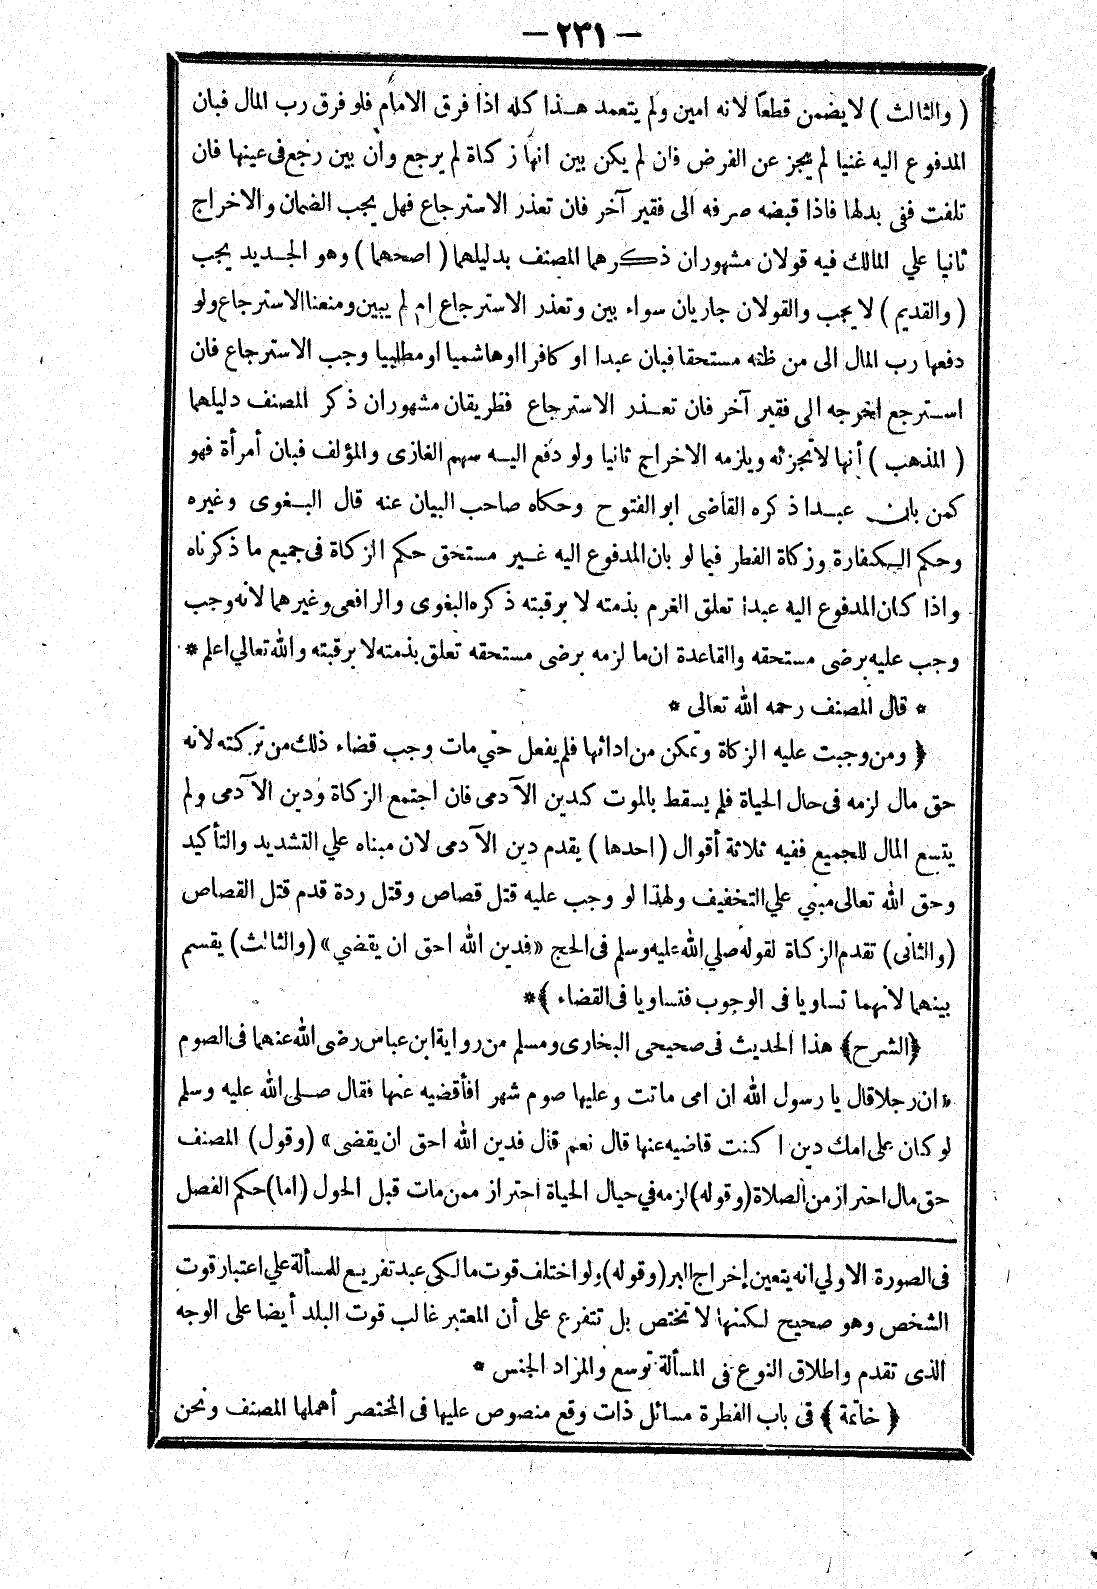 — ٢٣١ —
( والثالث ) لا يضمن قطعًا لانه امين ولم يتعمد هـذا كله اذا فرق الامام فلو فرق رب المال فبان
المدفوع اليه غنيا لم يجز عن الفرض فان لم يكن بين انها زكاة لم يرجع وان بين رجع فى عينها فان
تلفت ففى بدلها فاذا قبضه صرفه الى فقير آخر فان تعذر الاسترجاع فهل يجب الضمان والاخراج
ثانيا علي المالك فيه قولان مشهوران ذكرهما المصنف بدليلهما ( اصحهما ) وهو الجـديد يجب
( والقديم ) لا يجب والقولان جاريان سواء بين وتعذر الاسترجاع ام لم يبين ومنعنا الاسترجاع ولو
دفعها رب المال الى من ظنه مستحقا فبان عبدا او كافرا اوهاشميا او مطلبيا وجب الاسترجاع فان
استرجع اخرجه الى فقير آخر فان تعـذر الاسترجاع فطريقان مشهوران ذكر المصنف دليلهما
( المذهب ) أنها لا تجزئه ويلزمه الاخراج ثانيا ولو دفع اليـه سهم الغازى والمؤلف فبان أمرأة فهو
كمن بان عبـدا ذكره القاضى ابو الفتوح وحكاه صاحب البيان عنه قال البـغوى وغيره
وحكم الـكفارة وزكاة الفطر فيما لو بان المدفوع اليه غـير مستحق حكم الزكاة فى جميع ما ذكرناه
واذا كان المدفوع اليه عبدا تعلق الغرم بذمته لا برقبته ذكره البغوى والرافعى وغيرهما لانه وجب
وجب عليه برضى مستحقه والقاعدة ان ما لزمه برضى مستحقه تعلق بذمته لا برقبته والله تعالي اعلم *
* قال المصنف رحمه الله تعالى *
﴿ ومن وجبت عليه الزكاة وتمكن من ادائها فلم يفعل حتي مات وجب قضاء ذلك من تركته لانه
حق مال لزمه فى حال الحياة فلم يسقط بالموت كدين الآدمى فان اجتمع الزكاة ودين الآدمى ولم
يتسع المال للجميع ففيه ثلاثة أقوال ( احدها ) يقدم دين الآدمى لان مبناه علي التشديد والتأكيد
وحق الله تعالى مبني علي التخفيف ولهذا لو وجب عليه قتل قصاص وقتل ردة قدم قتل القصاص
(والثانى) تقدم الزكاة لقوله صلي الله عليه وسلم فى الحج «فدين الله احق ان يقضي» (والثالث) يقسم
بينهما لانهما تساويا فى الوجوب فتساويا فى القضاء ﴾*
﴿الشرح﴾ هذا الحديث فى صحيحى البخارى ومسلم من رواية ابن عباس رضى الله عنهما فى الصوم
« ان رجلا قال يا رسول الله ان امى ماتت وعليها صوم شهر افأقضيه عنها فقال صـلى الله عليه وسلم
لو كان على امك دين اكنت قاضيه عنها قال نعم قال فدين الله احق ان يقضى» (وقول) المصنف
حق مال احتراز من الصلاة (وقوله) لزمه في حيال الحياة احتراز ممن مات قبل الحول (اما) حكم الفصل
فى الصورة الاولي انه يتعين إخراج البر (وقوله) ولو اختلف قوت مالكى عبد تفريع للمسألة علي اعتبار قوت
الشخص وهو صحيح لـكنها لا تختص بل تتفرع على أن المعتبر غالب قوت البلد أيضا على الوجه
الذى تقدم واطلاق النوع فى المسألة توسع والمراد الجنس *
﴿ خاتمة ﴾ فى باب الفطرة مسائل ذات وقع منصوص عليها فى المختصر أهملها المصنف ونحن